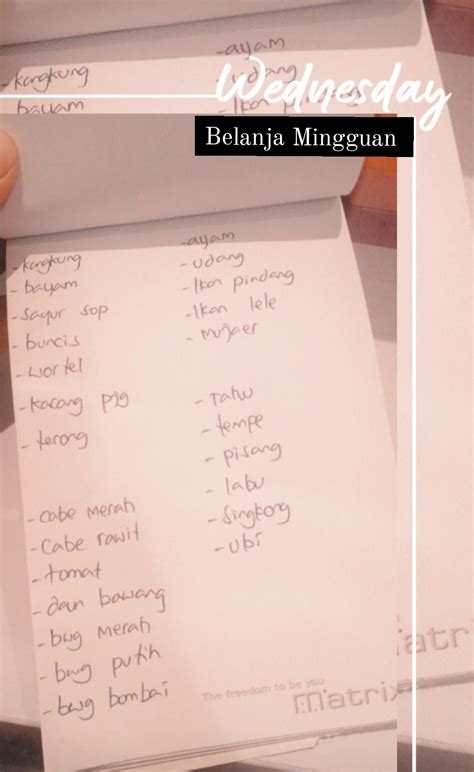 -ayam
-kangkung
-udang
Wednesday
bayam
-Ikan pindang
Belanja Mingguan
-kangkung
-bayam
-sayur sop
-buncis
-wortel
-kacang pjg
-terong
-cabe merah
-cabe rawit
-tomat
-daun bawang
-bwg merah
-bwg putih
-bwg bombai
-ayam
-udang
-Ikan pindang
-Ikan lele
-mujaer
-Tahu
-tempe
-pisang
-labu
-Singkong
-ubi
The freedom to be you
Matrix
atr